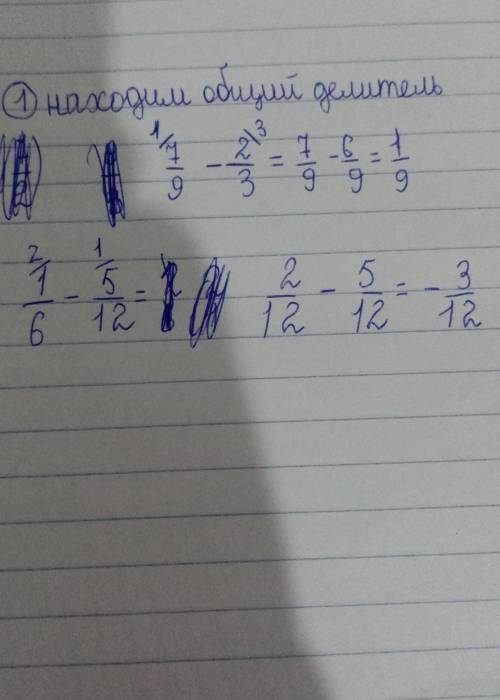 ① находим общий делитель
1/ 7/9 - 2\3/3 = 7/9 - 6/9 = 1/9
2/ 1/6 - 1/ 5/12 = 2/12 - 5/12 = - 3/12